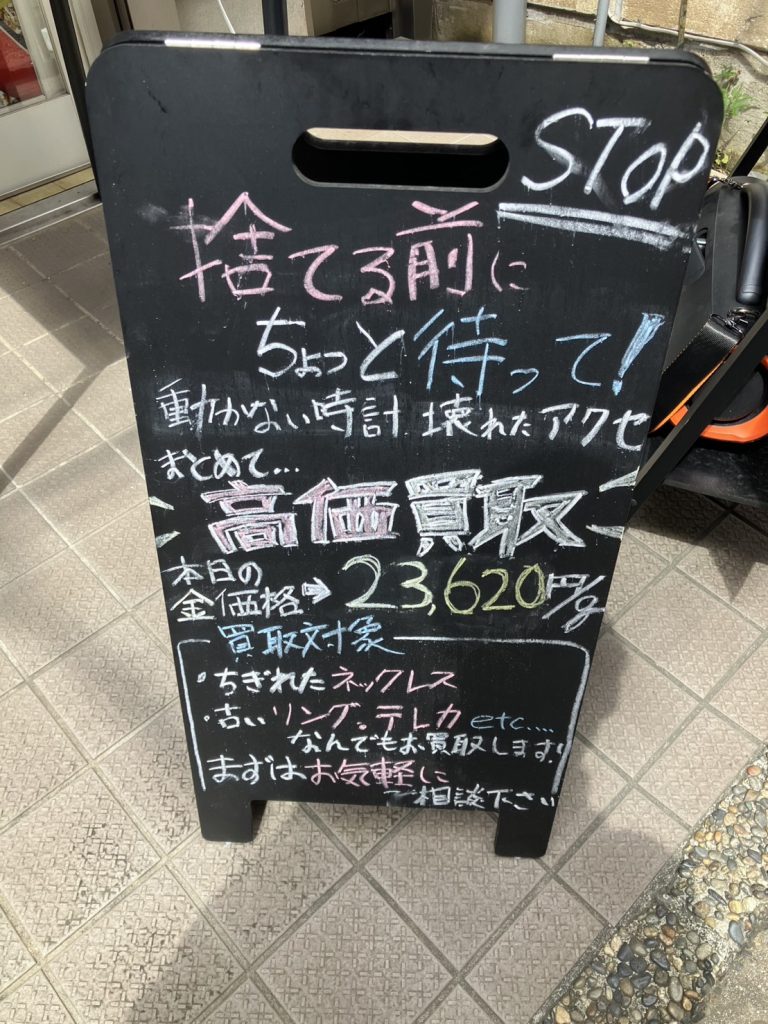 STOP
捨てる前に
ちょっと待って!
動かない時計 壊れたアクセ
まとめて...
高価買取
本日の
金価格➡23,620円/g
買取対象
・ちぎれたネックレス
・古いリング・テレカ etc....
なんでもお買取します!
まずはお気軽に
ご相談下さい